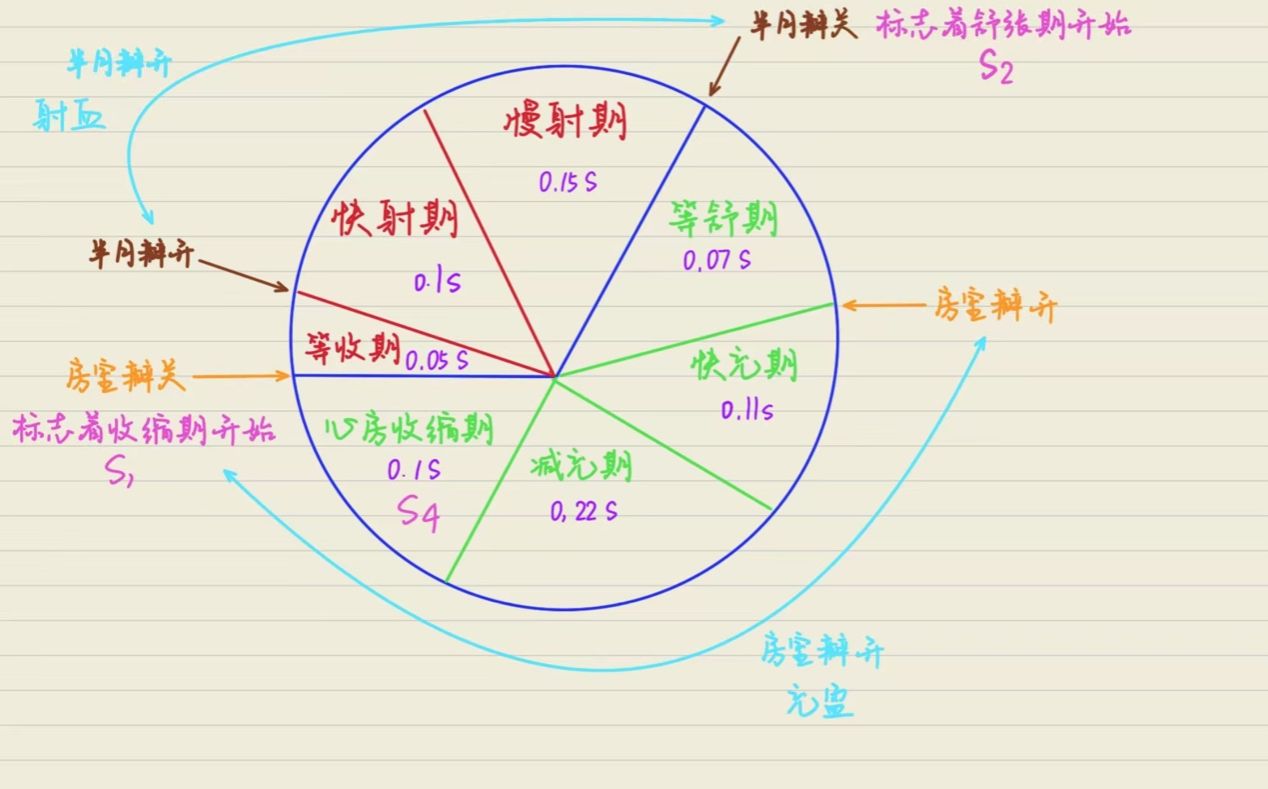 半月瓣关 标志着舒张期开始
S2
半月瓣开
射血
慢射期
0.15S
快射期
0.1S
等舒期
0.07S
半月瓣开
房室瓣开
等收期 0.05S
快充期
0.11S
房室瓣关
标志着收缩期开始
S1
心房收缩期
0.1S
S4
减充期
0,22S
房室瓣开
充盈